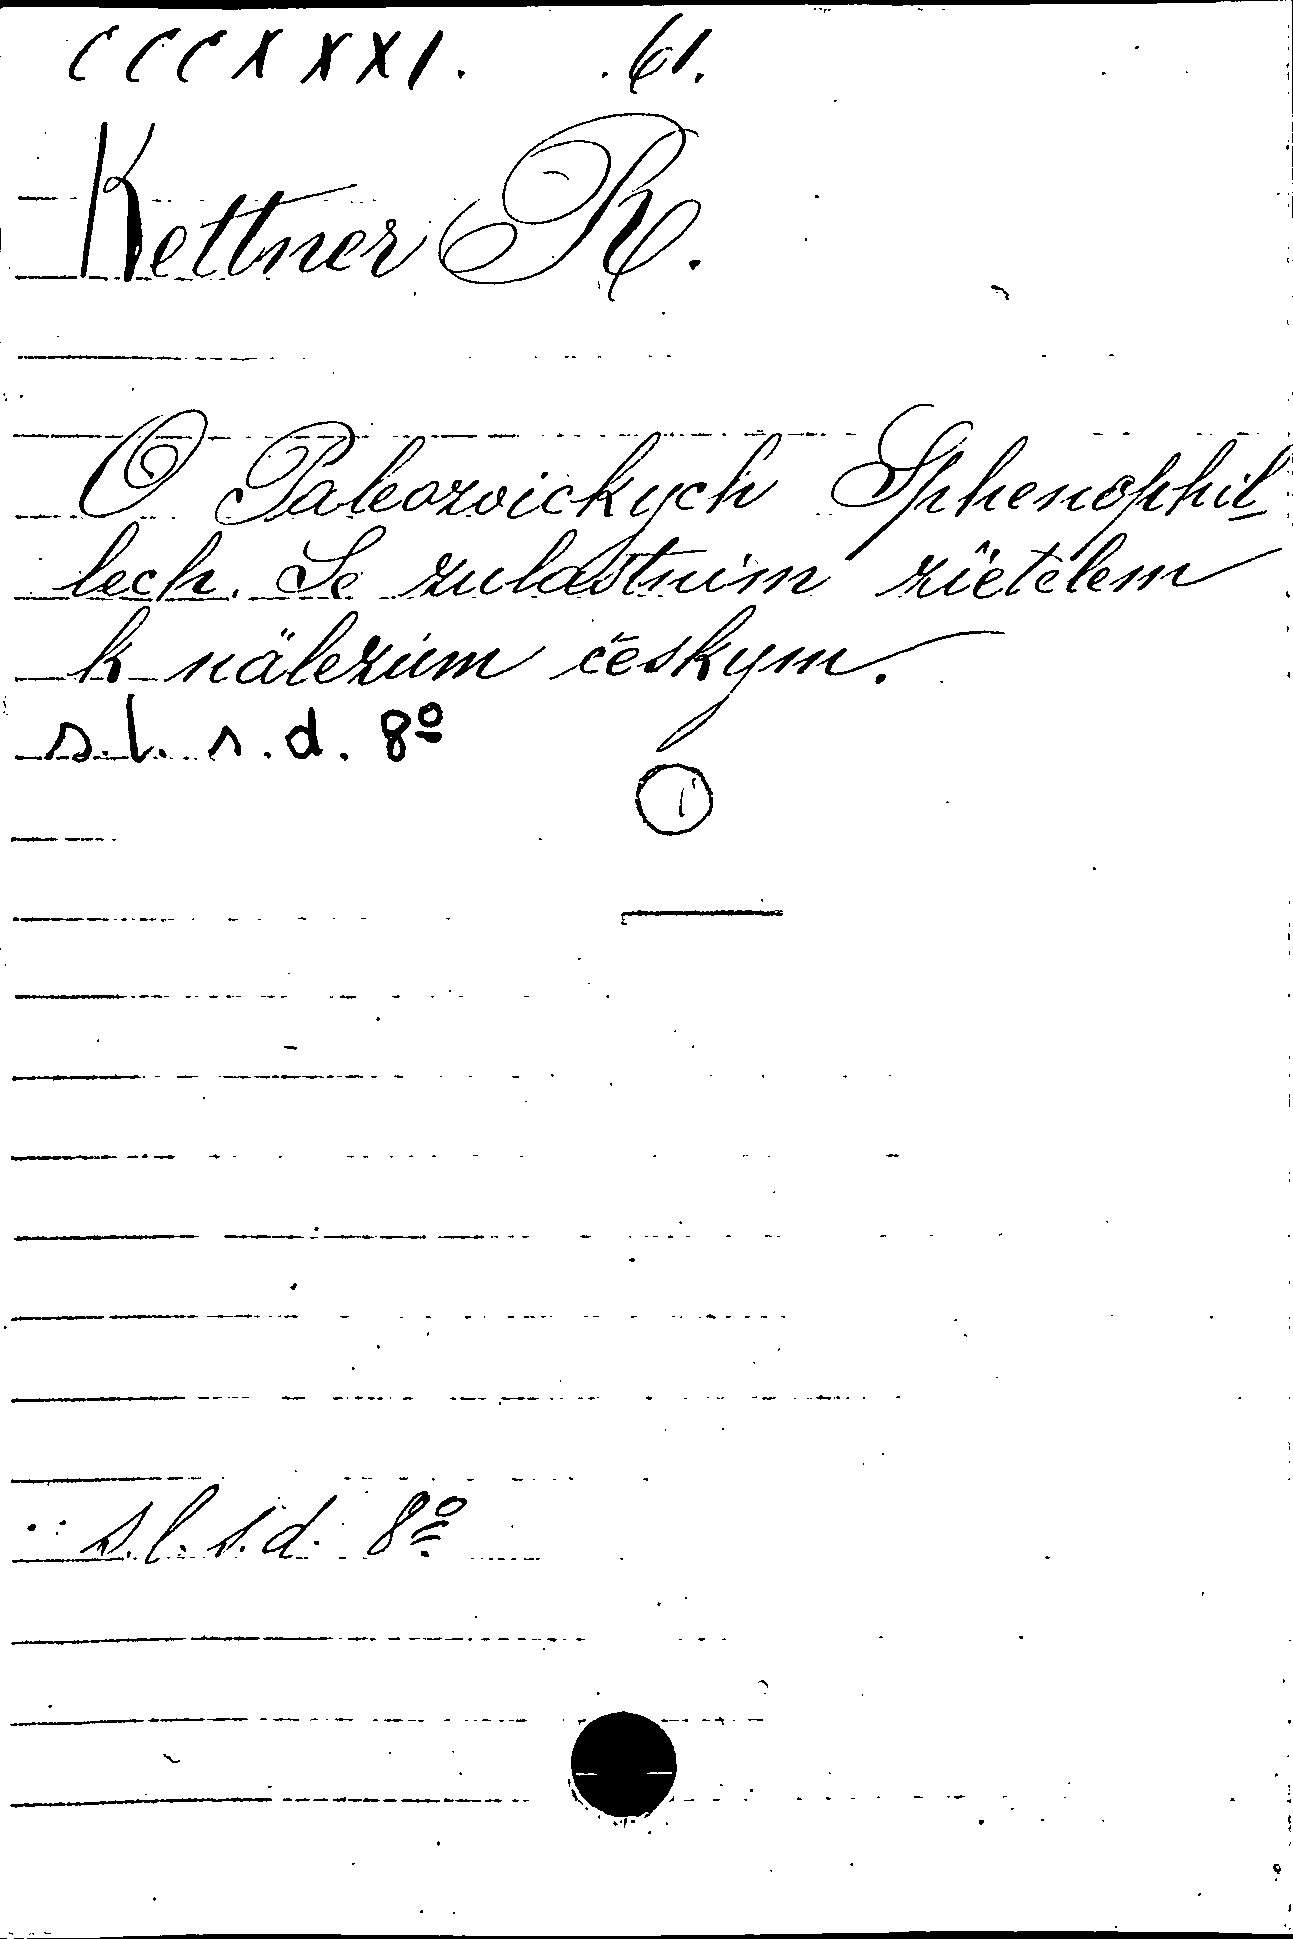 CCCXXXI. .61.
Kettner R.
O Paleozoickych Sphenophil-
lech. Se zulastnim zietelem
k nälezum českym.
s.l. s.d. 8º
1
s.l. s.d. 8º